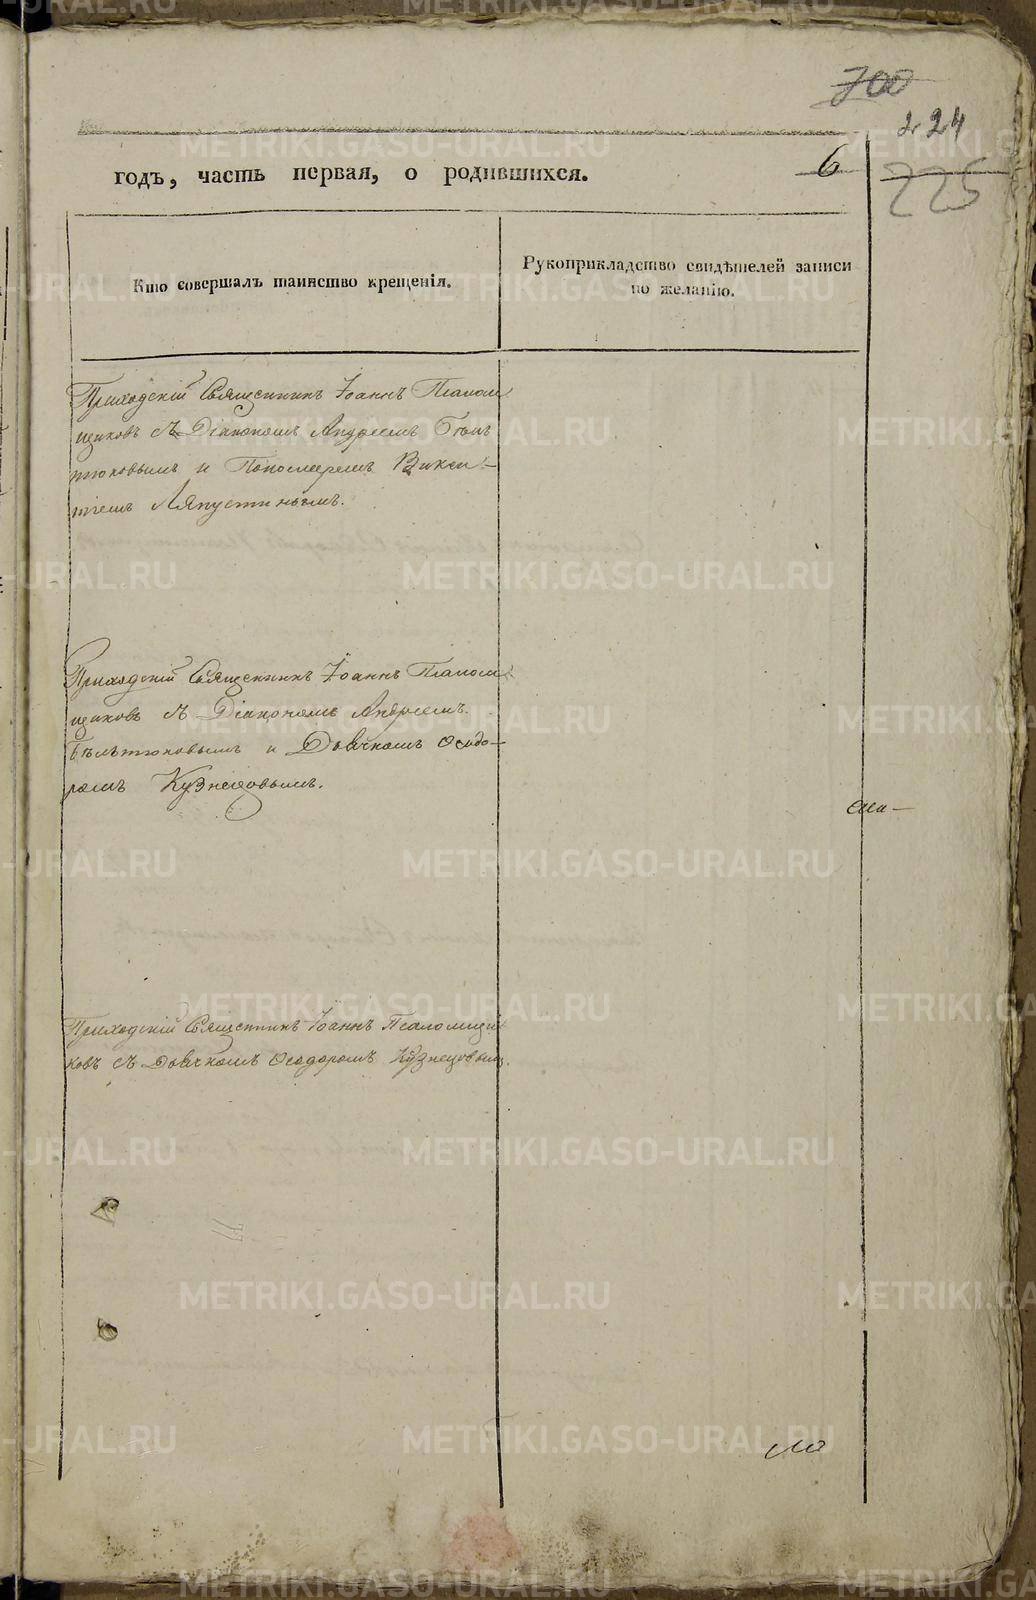 700
224
годъ, часть первая, о родившихся.
6
225
Кто совершалъ таинство крещенія.
Рукоприкладство свидѣтелей записи
по желанію.
Приходскій Священникъ Іоаннъ Псалом
щиковъ съ Діакономъ Андреемъ Бѣль
тюковымъ и Пономаремъ Викен-
тіемъ Ляпустинымъ.
Приходскій Священникъ Іоаннъ Псалом
щиковъ съ Діакономъ Андреемъ
Бѣльтюковымъ и Дьячкомъ Ѳеодо-
ромъ Кузнецовымъ.
Приходскій Священникъ Іоаннъ Псаломщи
ковъ съ Дьячкомъ Ѳеодоромъ Кузнецовымъ.
METRIKI.GASO-URAL.RU